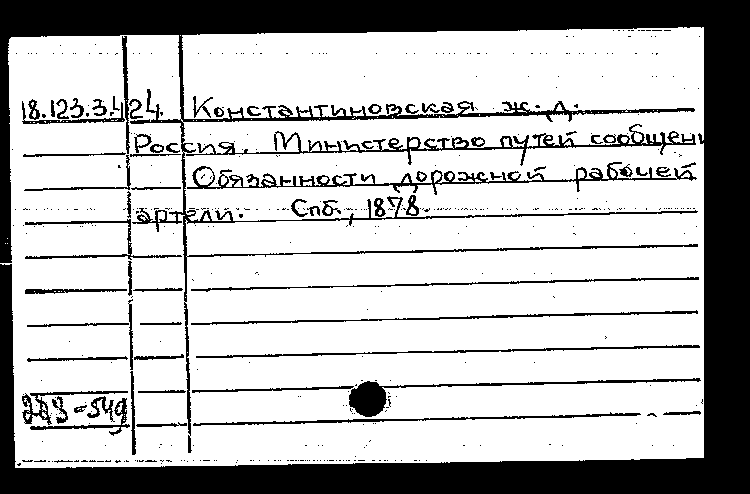 18.123.3.424. Константиновская ж. д.
Россия. Министерство путей сообщени
Обязанности дорожной рабочей
артели. Спб., 1878.